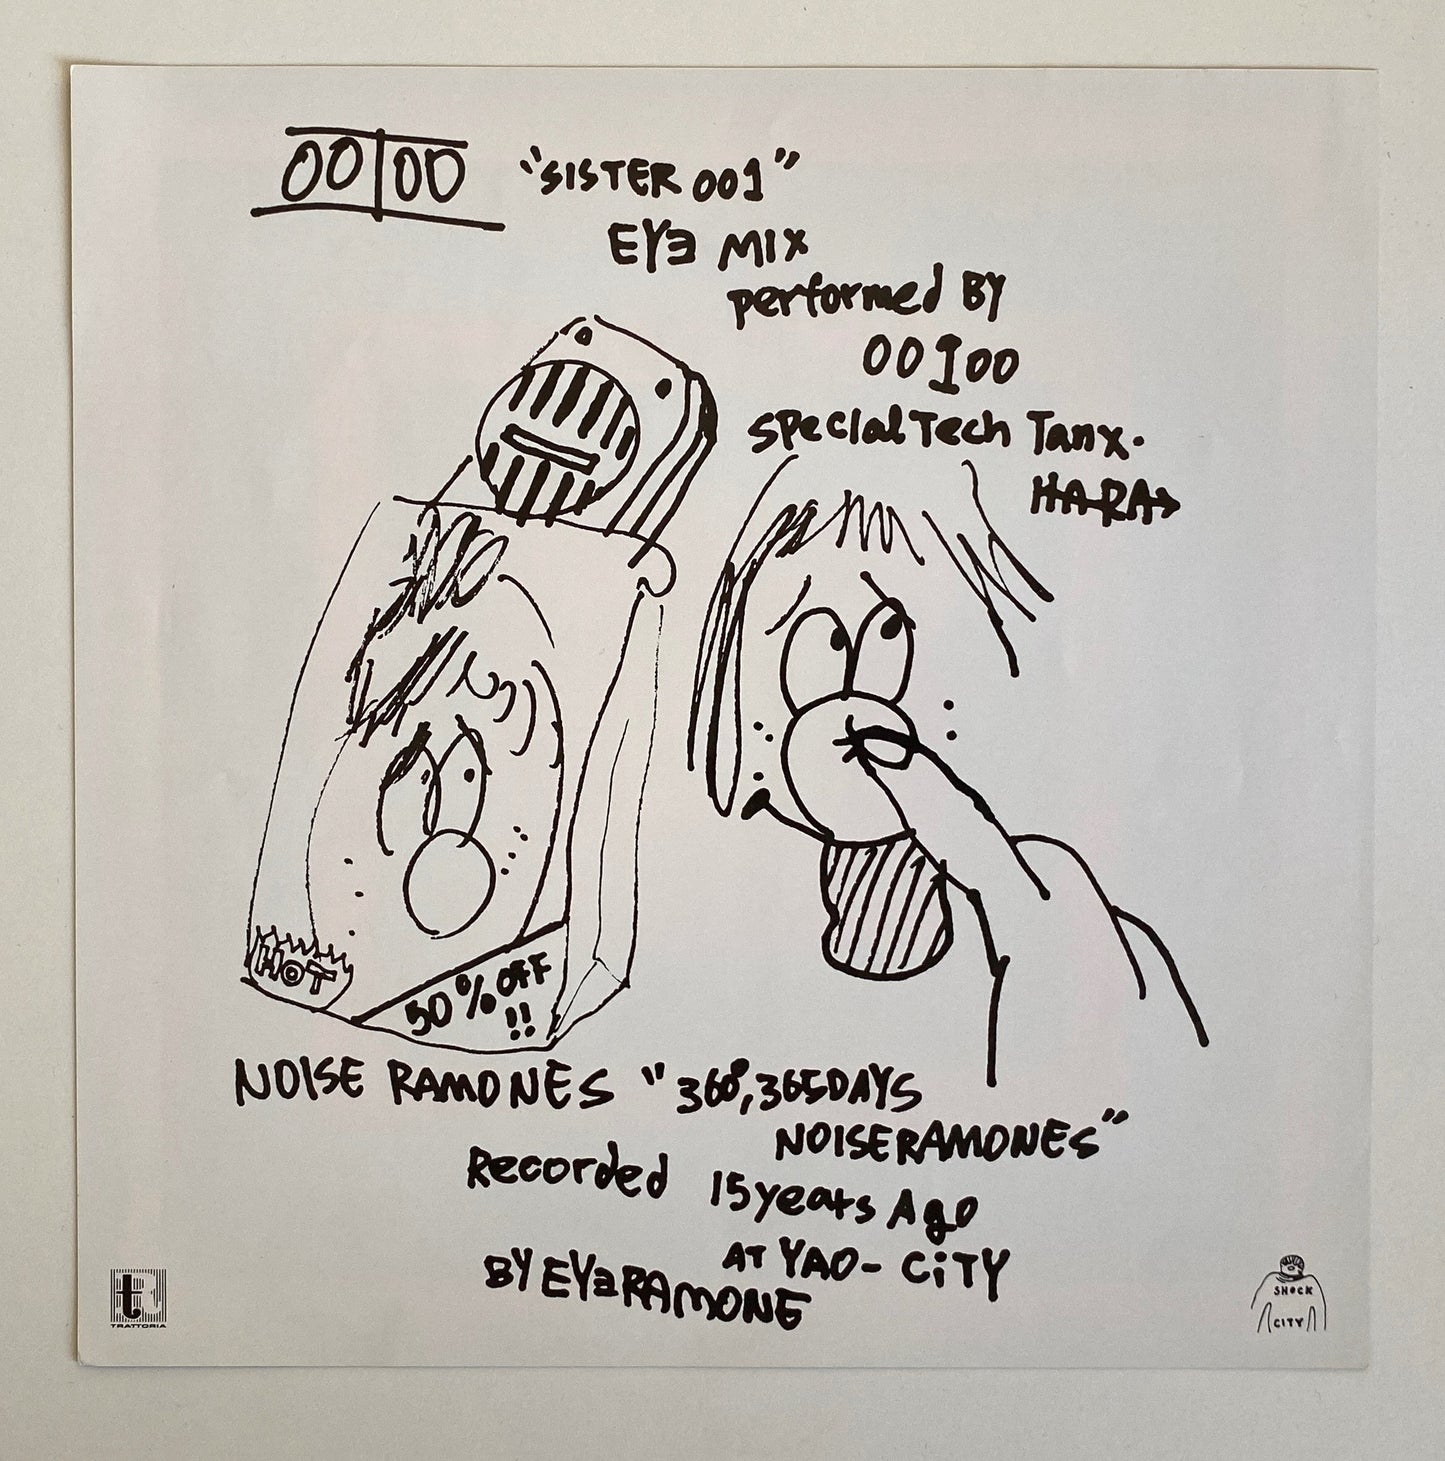 00|00
"SISTER 001"
EYƎ MIX
performed BY
00I00
special Tech Tanx.
HARA
HOT
50% OFF
!!
NOISE RAMONES "360°,365DAYS
NOISERAMONES"
Recorded 15years Ago
AT YAO-CiTY
BY EYƎRAMONE
t
TRATTORIA
SHOCK
CITY